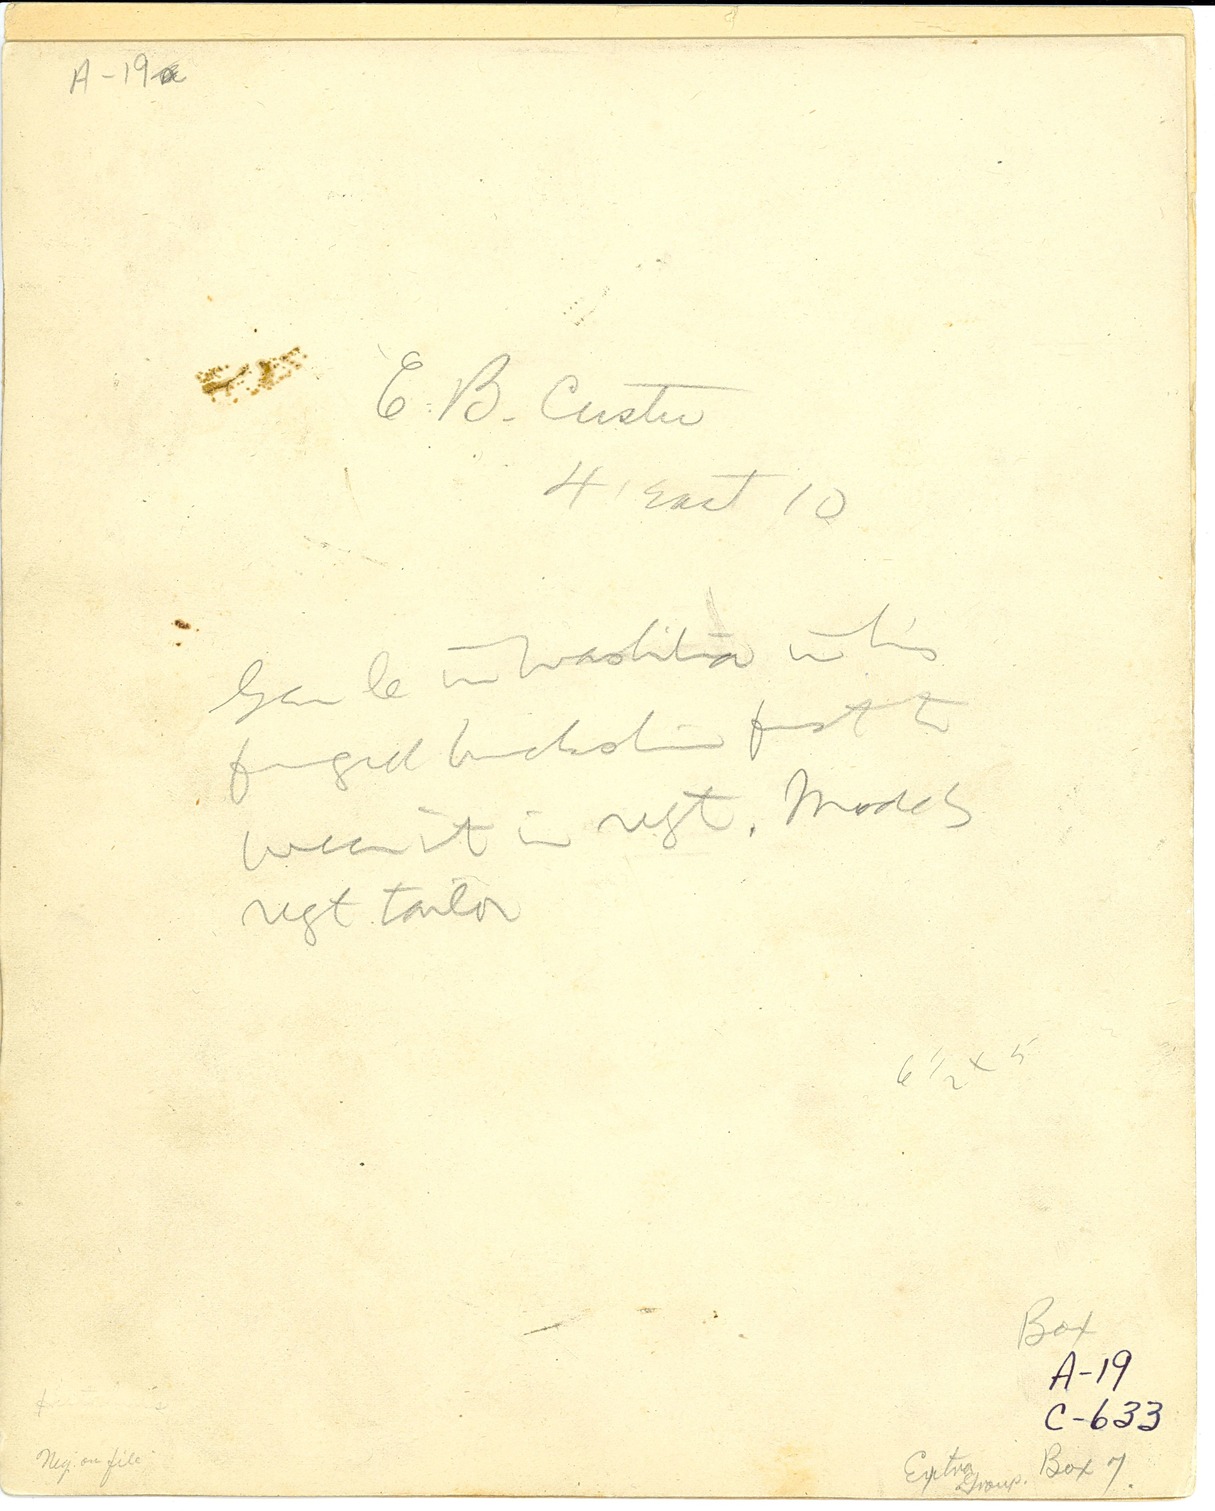 A-19a
E. B. Custer
4 East 10
Gen C in Washita in his
fringed buckskin first to
wear it in regt. Made by
regt tailor
6 1/2 x 5
Box
A-19
C-633
Neg. on file
Extra Group. Box 7.